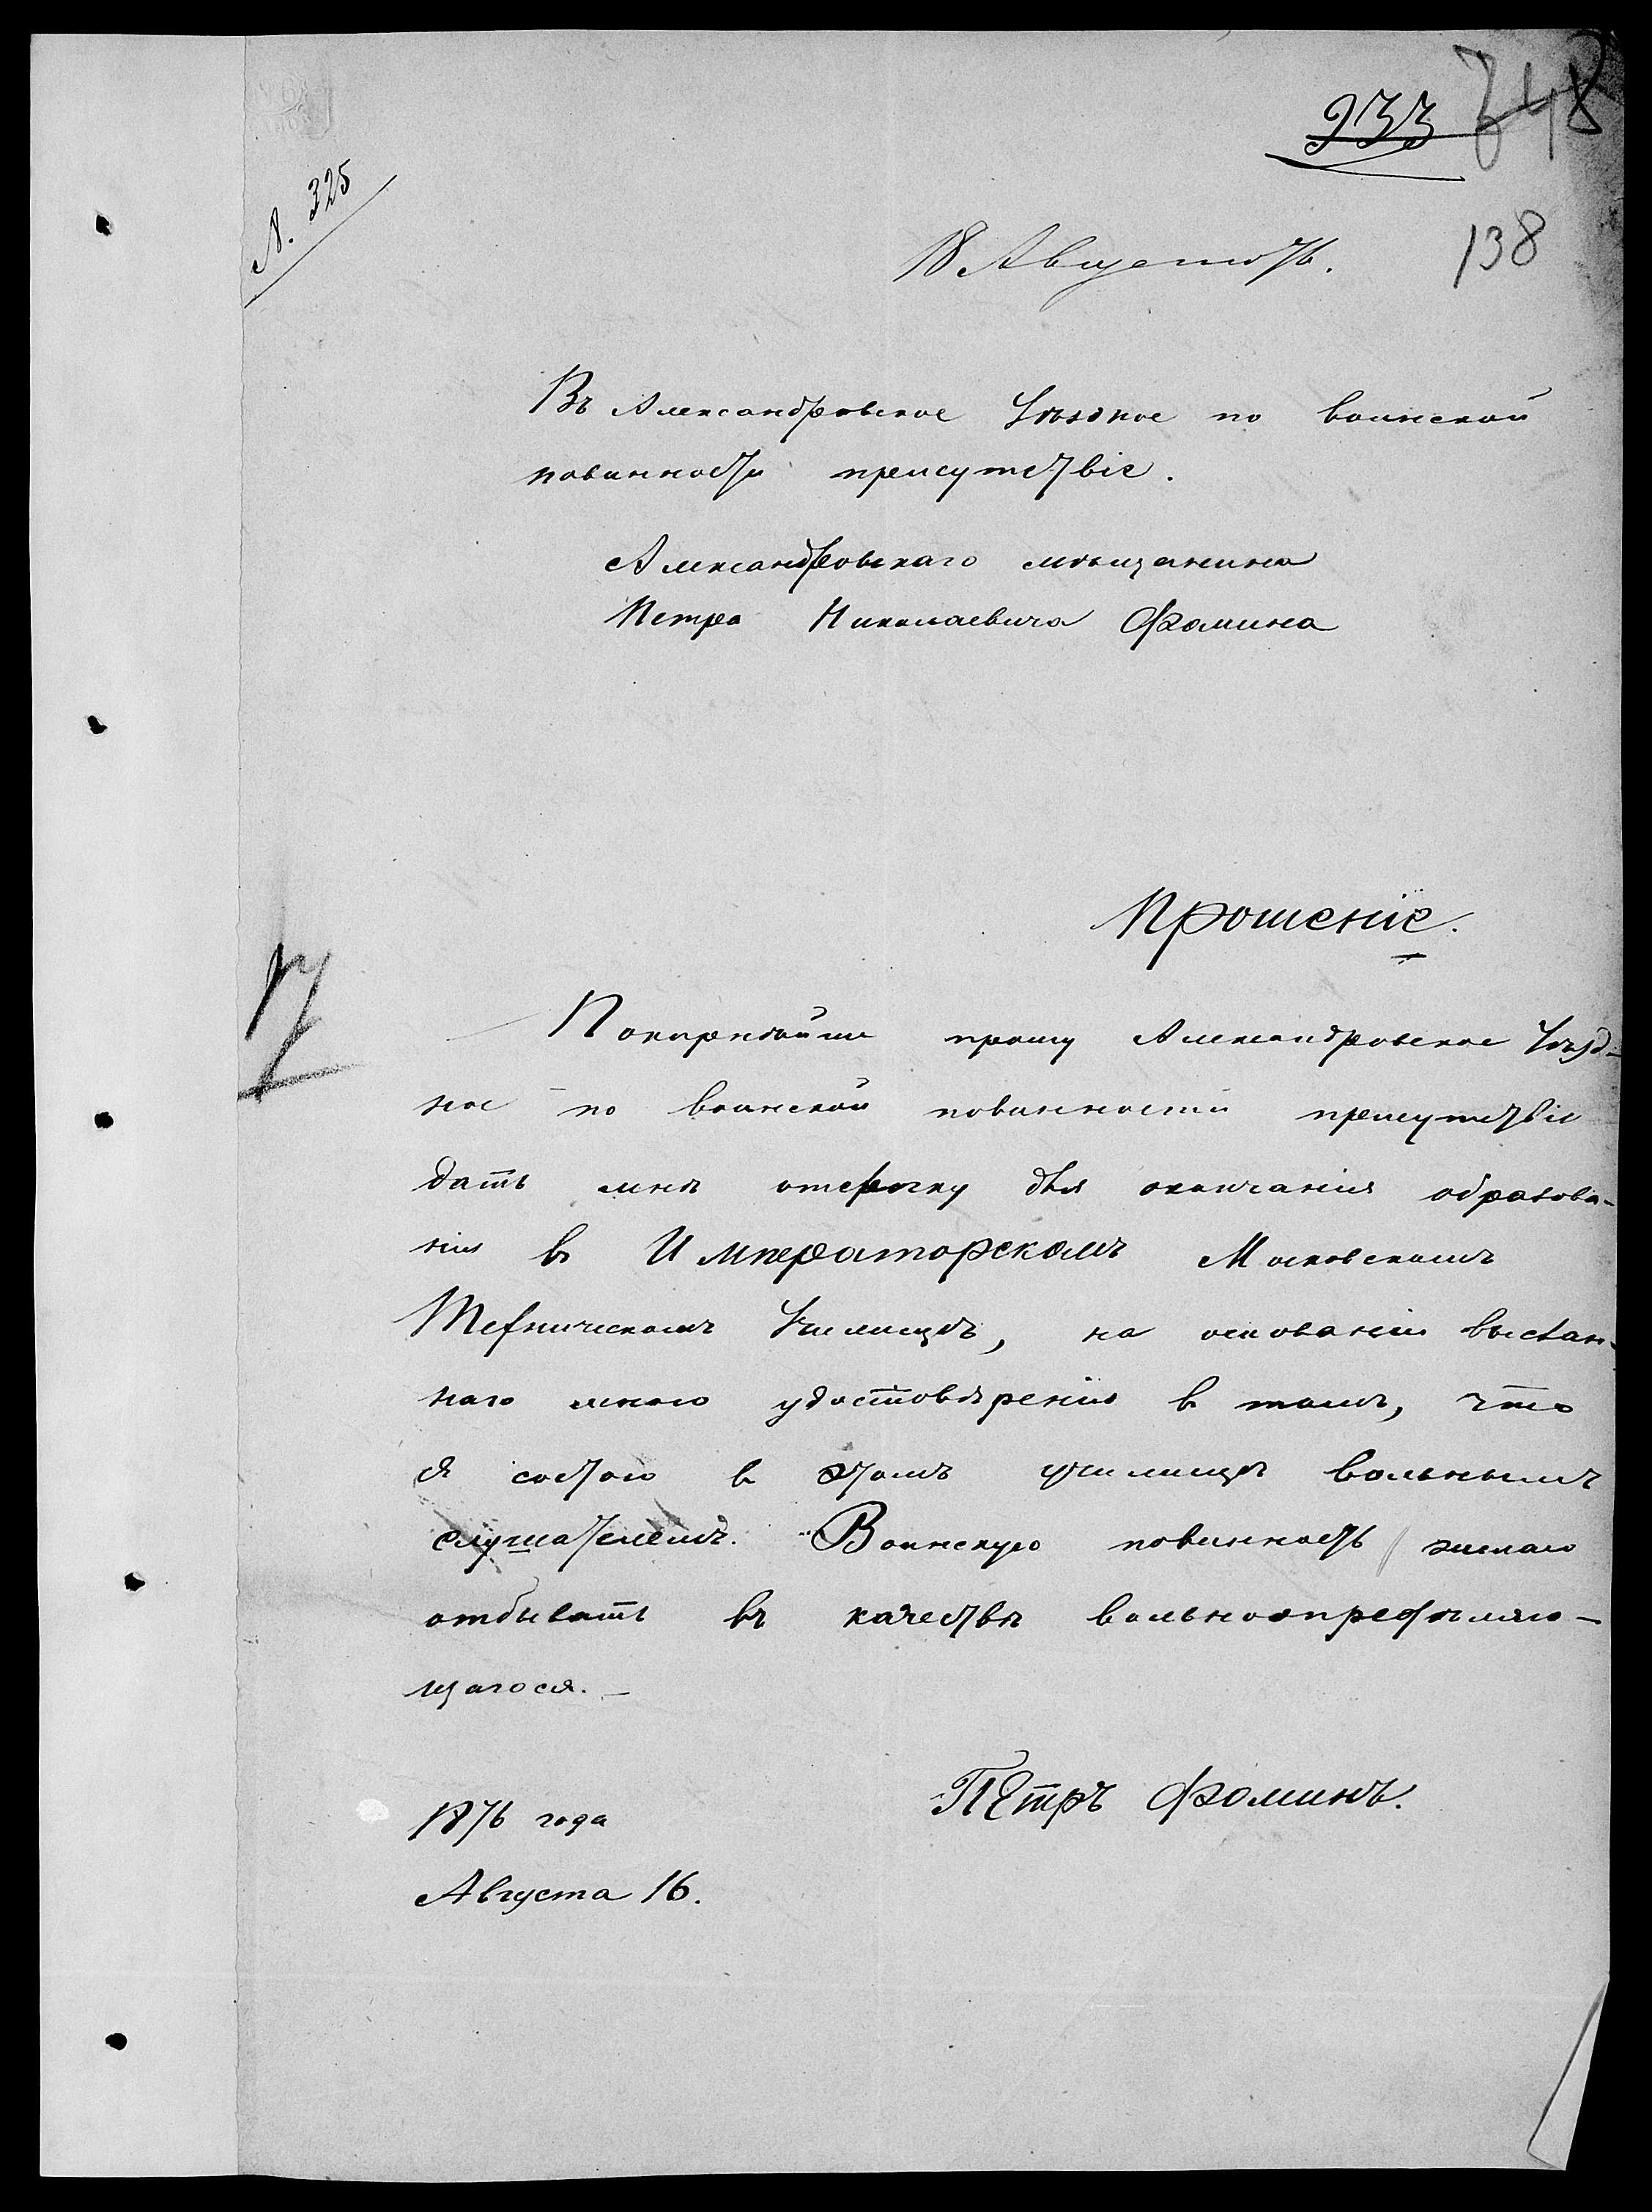 933 748
N. 325
18 Августа 76.
138
Въ Александровское Уѣздное по воинской
повинности присутствіе.
Александровскаго мѣщанина
Петра Николаевича Фомина
Прошеніе.
Покорнѣйше прошу Александровское Уѣзд-
ное по воинской повинности присутствіе
дать мнѣ отсрочку для окончанія образова-
нія въ Императорскомъ Московскомъ
Техническомъ Училищѣ, на основаніи выслан-
наго мною удостовѣренія в томъ, что
я состою в этомъ училищѣ вольнымъ
слушателемъ. Воинскую повинность желаю
отбывать въ качествѣ вольноопредѣляю-
щагося.
Петръ Фоминъ.
1876 года
Августа 16.